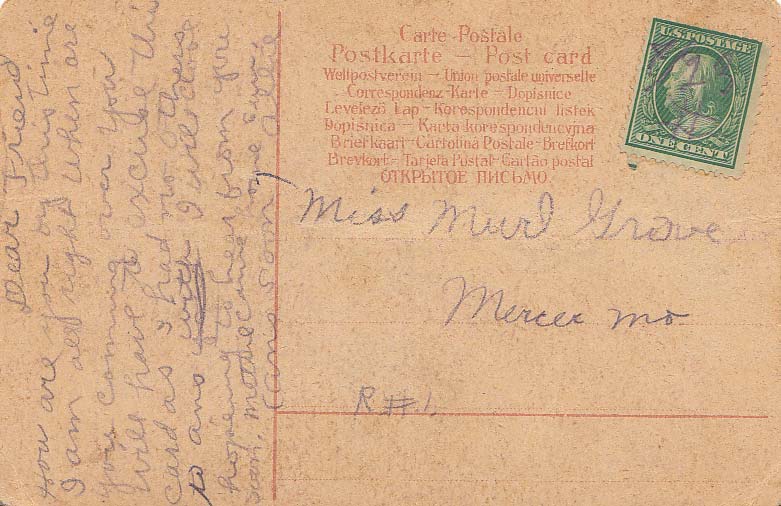 Dear Friend
How are you by this time
I am all right when are
you coming over You
Will have to excuse this
card as I had no others
to ans with I will close
hopeing to hear from you
soon.
ans soon
Carte Postale
Postkarte – Post card
Weltpostverein – Union postale universelle
Correspondenz-Karte – Dopisnice
Levelező Lap - Korespondencní listek
Dopisnica – Karta korespondencyjna
Briefkaart - Cartolina Postale - Brefkort
Brevkort - Tarjeta Postal - Cartão postal
ОТКРЫТОЕ ПИСЬМО.
U.S. POSTAGE
ONE CENT
Miss Murl Grove
Mercer Mo
R#1.